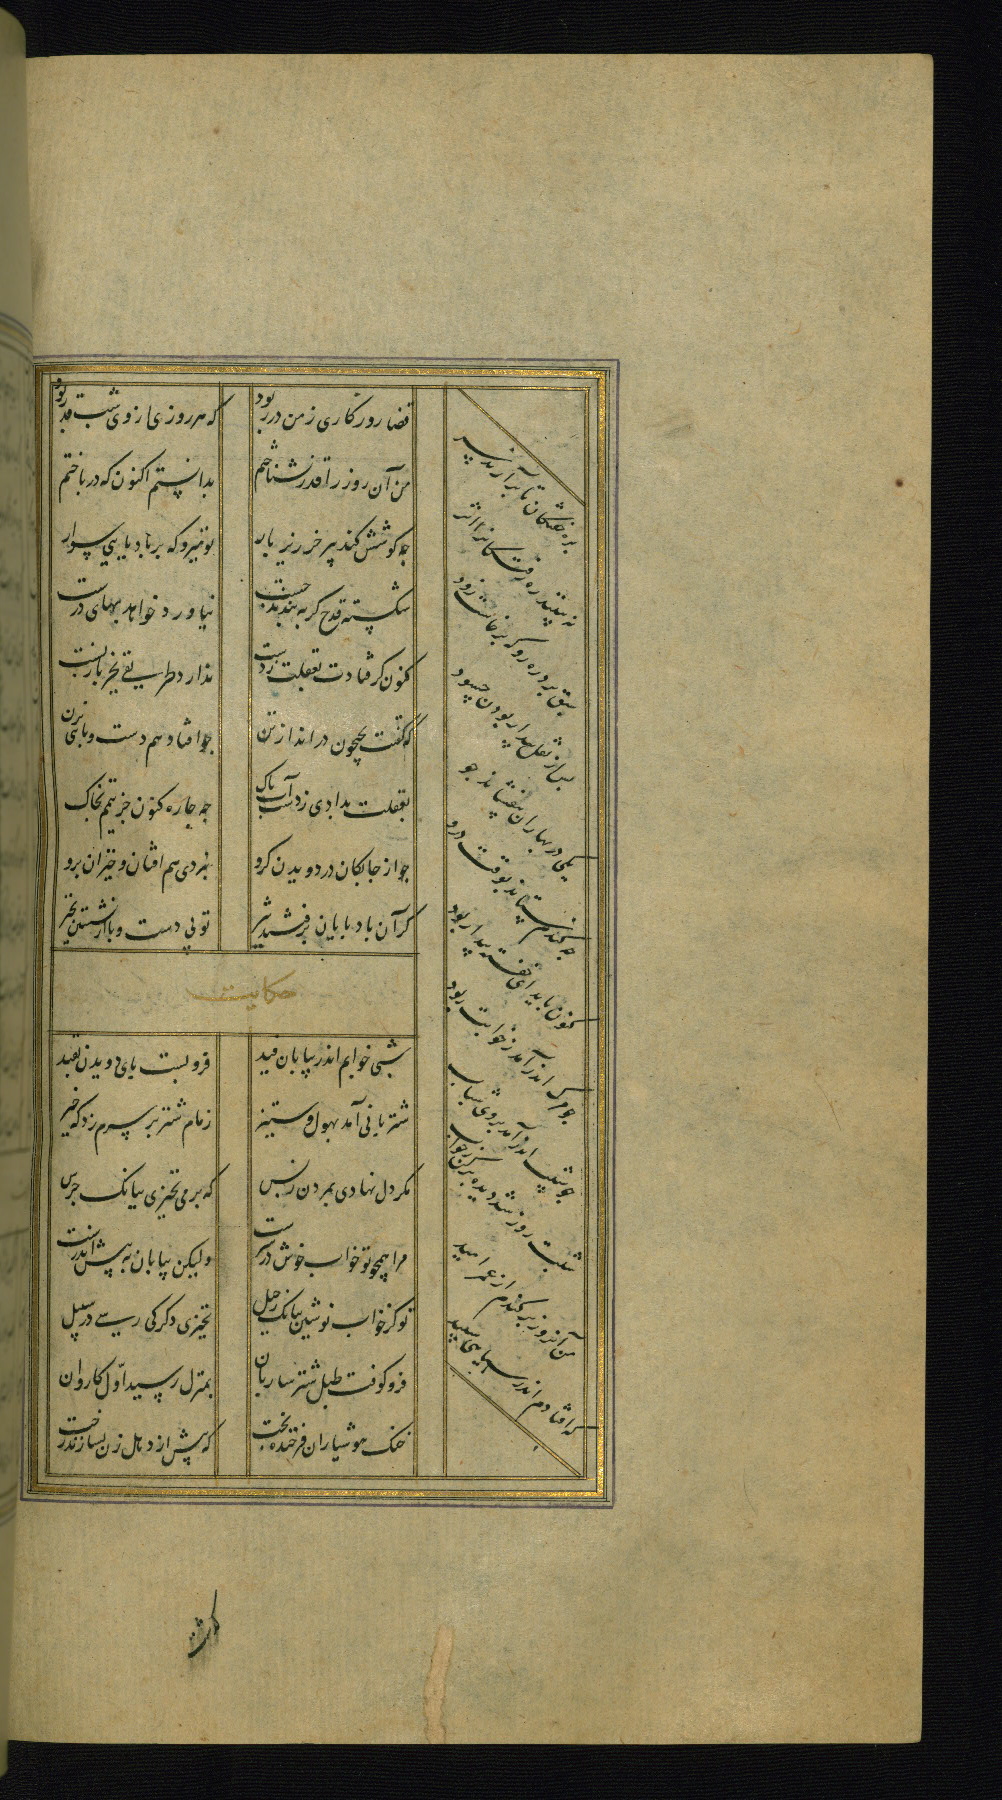 قضا روزکاری ز من در ربود
که هر روزی از وی شب قدر بود
من آن روز را قدر نشناختم
بدانستم اکنون که در باختم
چه کوشش کند پیر خر زیر بار
تو میرو که بر باد پایی سوار
شکسته قدح کر ببندند چست
نیاورد خواهد بهای درست
کنون کرفتادت بغفلت ز دست
نذارد طریقی بخز باز بست
که کفتت بجیحون در انداز تن
چو افتاد هم دست و پایی بزن
بغفلت بدادی ز دست آب پاک
چه چاره کنون جز تیمم بخاک
چو از چابکان در دویدن کرو
نبردی هم افتان و خیزان برو
کر آن باد پایان برفتند تیز
تو بی دست و پا از نشستن بخیز
حکایت
شبی خوابم اندر بیابان فید
فرو بست پای دویدن بقید
شتر بانی آمد بهول و ستیز
زمام شتر بر سرم زد که خیز
مکر دل نهادی بمردن ز پس
که بر می نخیزی ببانک جرس
مرا همچو تو خواب خوش در سرست
ولیکن بیابان به پیش اندرست
تو کز خواب نوشین ببانک رحیل
نخیزی دکر کی رسی در سبیل
فرو کوفت طبل شتر ساربان
بمنزل رسید اوّل کاروان
خنک هوشیاران فرخنده بخت
که پیش از دهل زن بسازند رخت
بره خفتکان تا برآرند سر
نه بینند ره رفتکانرا اثر
سبق برد ره رو که برخاست زود
پس از نقل بیدار بودن چه سود
یکی در بهاران بیفشانده جو
چه کندم ستاند بوقت درو
کنون باید ای خفته بیدار بود
چو مرک اندر آمد ز خوابت ربود
چو شیب اندر آمد بروی شباب
شبت روز شد دیده بر کن ز خواب
من آنروز بر کندم از عمر امید
که افتادم اندر سیاهی سپید